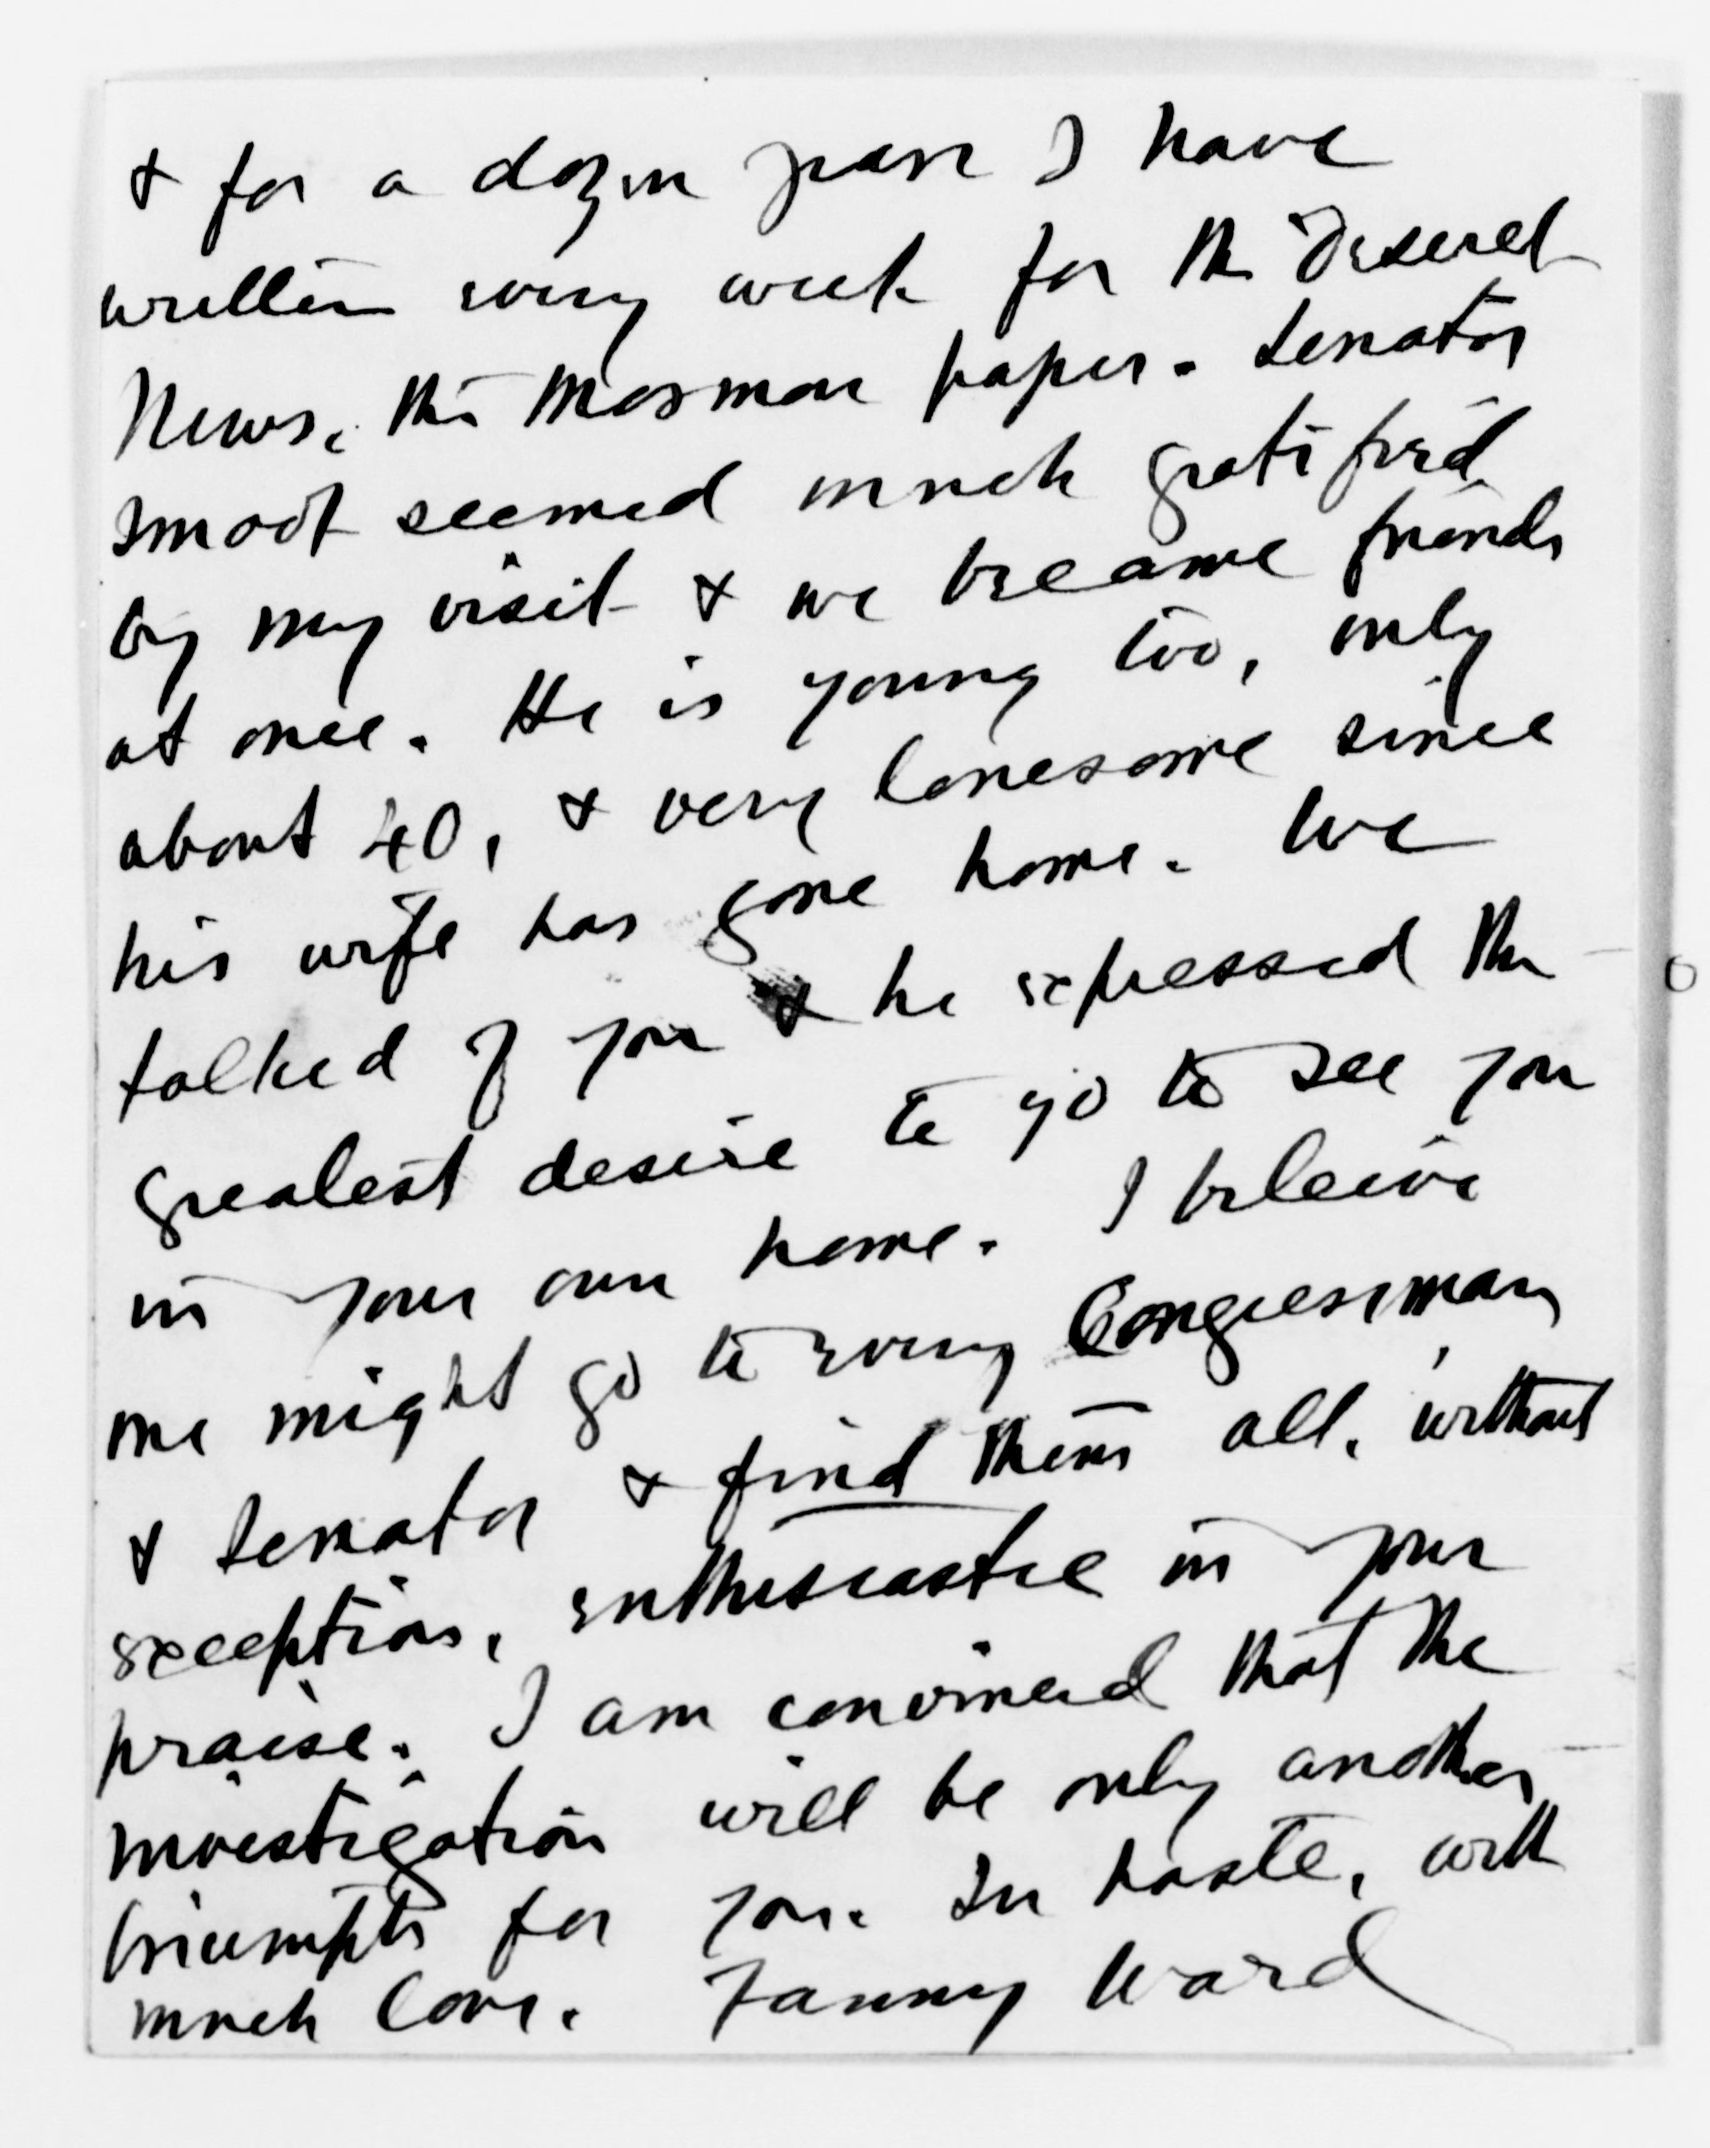 & for a dozen years I have
written every week for the Deseret
News, the Mormon paper. Senator
Smoot seemed much gratified
by my visit & we became friends
at once. He is young too, only
about 40, & very lonesome since
his wife has gone home. We
talked of you & he expressed the
greatest desire to go to see you
in your own home. I beleive
one might go to every Congressman
& Senator & find them all, without
exception, enthusiastic in your
praise. I am convinced that the
investigation will be only another
triumph for you. In haste, with
much love. Fanny Ward